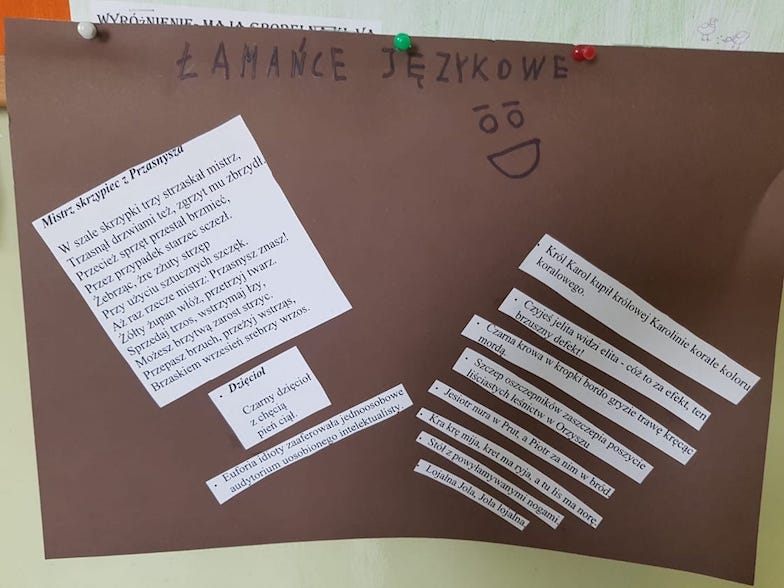 WYRÓŻNIENIE MAJA
ŁAMAŃCE JĘZYKOWE
Mistrz skrzypiec z Przasnysza
W szale skrzypki trzy strzaskał mistrz,
Trzasnął drzwiami też, zgrzyt mu zbrzydł.
Przecież sprzęt przestał brzmieć,
Przez przypadek starzec sczezł.
Żebrząc, żre zżuty strzęp
Przy użyciu sztucznych szczęk.
Aż raz rzecze mistrz: Przasnysz znasz!
Żółty żupan włóż, przetrzyj twarz.
Sprzedaj trzos, wstrzymaj łzy,
Możesz brzytwą zarost strzyc.
Przepasz brzuch, przeżyj wstrząs,
Brzaskiem wrzesień srebrzy wrzos.
• Dzięcioł
Czarny dzięcioł
z chęcią
pień ciął.
• Euforia idioty zaaferowała jednoosobowe
audytorium uosobionego intelektualisty.
• Król Karol kupił królowej Karolinie korale koloru
koralowego.
• Czyjeś jelita widzi elita - cóż to za efekt, ten
brzuszny defekt!
• Czarna krowa w kropki bordo gryzie trawę kręcąc
mordą.
• Szczep oszczepników zaszczepia poszycie
liściastych leśnictw w Orzyszu.
• Jesiotr nura w Prut, a Piotr za nim w bród.
• Kra krę mija, kret ma ryja, a tu lis ma norę.
• Stół z powyłamywanymi nogami.
• Lojalna Jola, Jola lojalna.